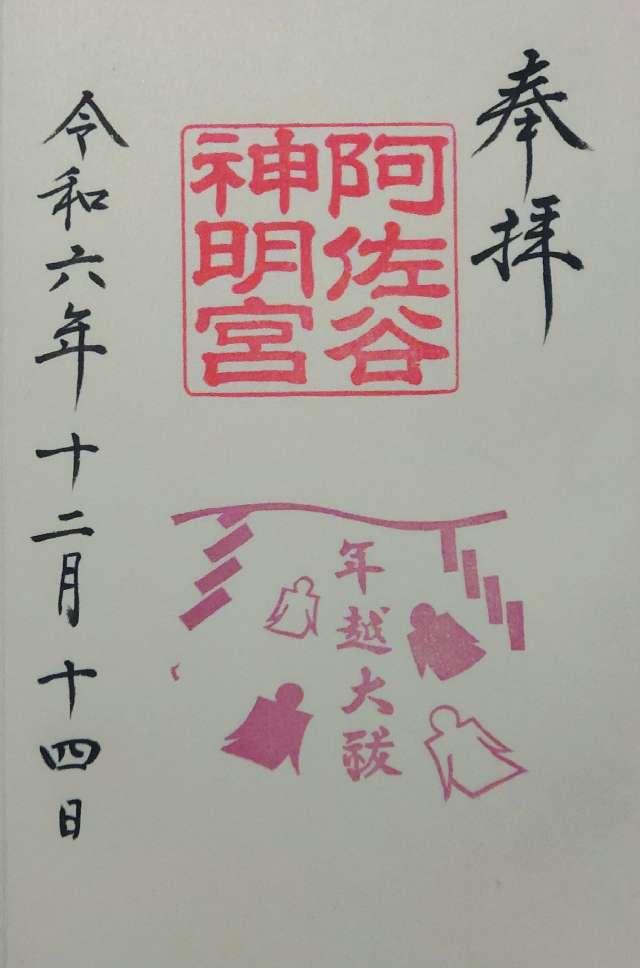 奉拝
阿佐谷
神明宮
年越大祓
令和六年十二月十四日